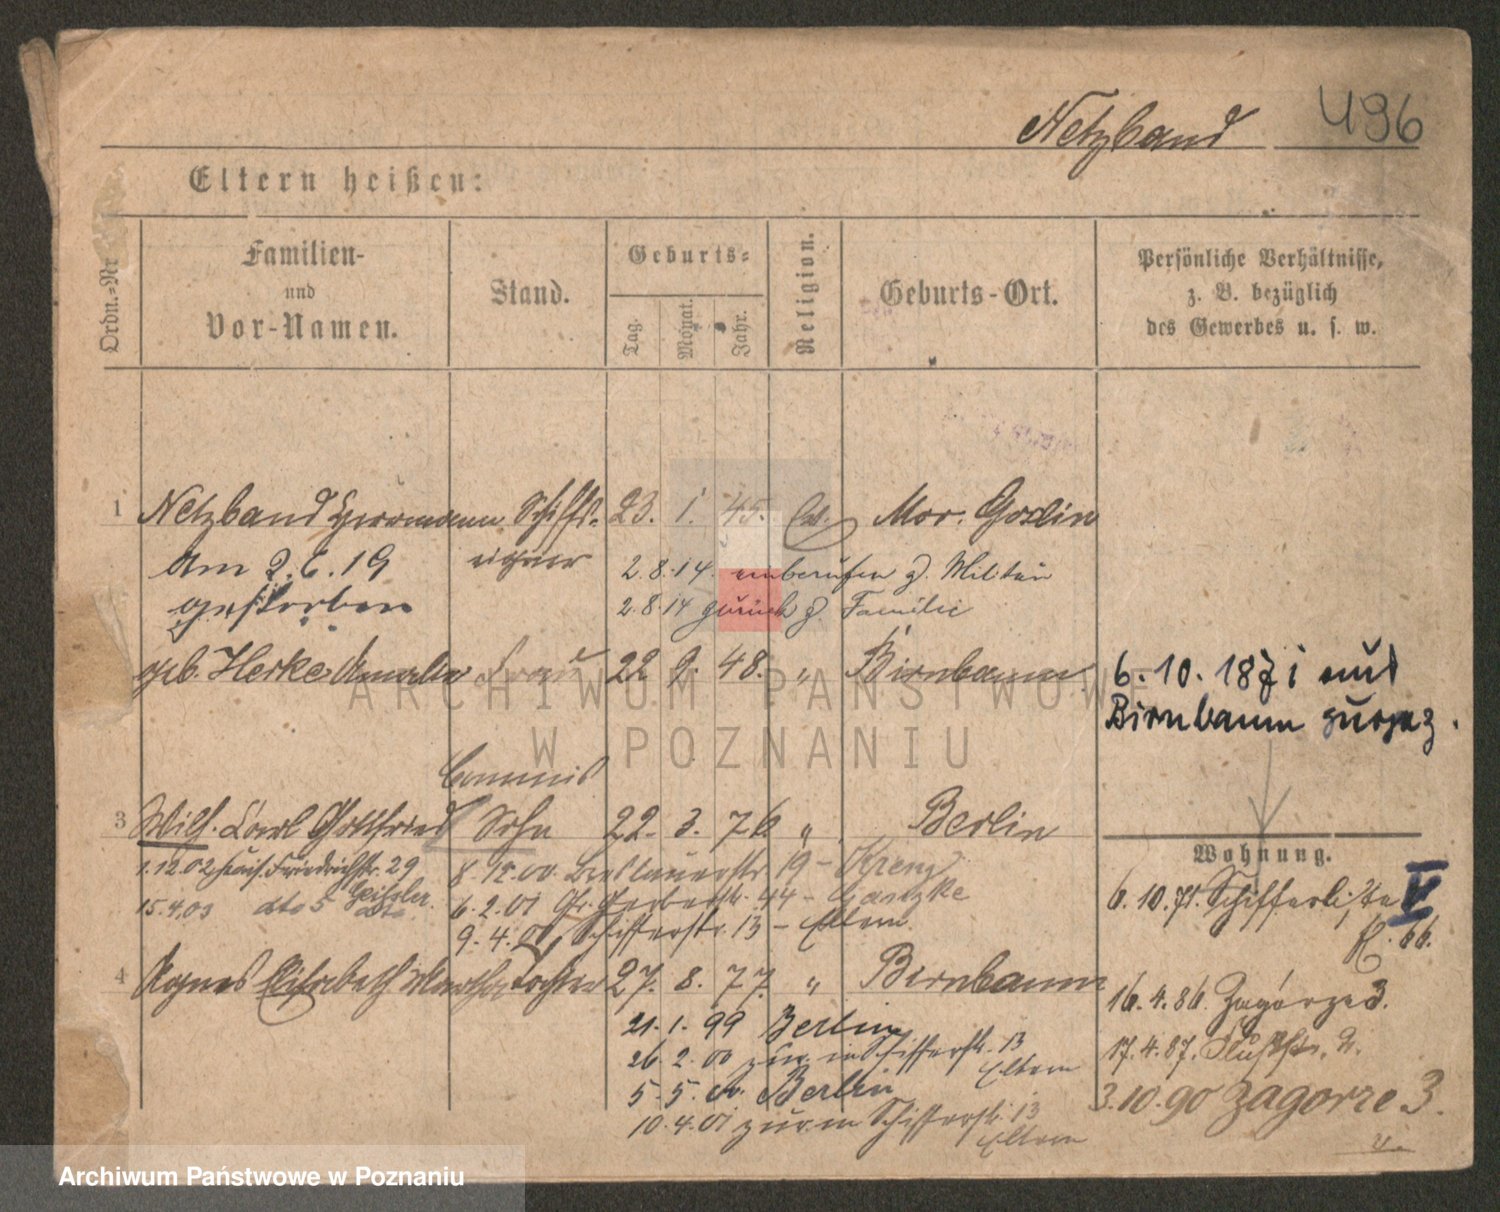 Netzband 496
Eltern heißen:
Ordn.=Nr
Familien-
und
Vor-Namen.
Stand.
Geburts=
Tag.
Monat.
Jahr.
Religion.
Geburts-Ort.
Persönliche Verhältnisse,
z. B. bezüglich
des Gewerbes u. s. w.
1 Netzband Herrmann Schiffs- 23. 1. 45. Mor. Goslin
Am 2. 6. 19 eigner 2.8.14. einberufen z. Militär
gestorben 2.8.14 zurück z. Familie
geb. Herke Amalie Frau 22 9. 48. " Birnbaum
6.10.1871 aus
Birnbaum zugez.
Commis
3 Wilh. Carl Gottfried Sohn 22. 3. 76 " Berlin
1.12.02 Friedrichstr. 29
15.4.03 dto 5 Geissler
8.12.00. Breslauerstr 19 - Krenz
6.2.01 Gr. Gerberstr. 44 -
9.4.01, Schifferstr. 13 - Eltern
4 Agnes Elisabeth Martha Tochter 27. 8. 77. " Birnbaum
21.1.99 Berlin
26.2.00 zur. in Schifferstr. 13
Eltern
5.5.00. Berlin
10.4.01 zur. in Schifferstr. 13
Eltern
Wohnung.
6.10.71. Schifferstr. V
66.
16.4.86. Zagórze 3.
17.4.87. Flußstr.
3.10.90 Zagorze 3.
ARCHIWUM PAŃSTWOWE
W POZNANIU
Archiwum Państwowe w Poznaniu